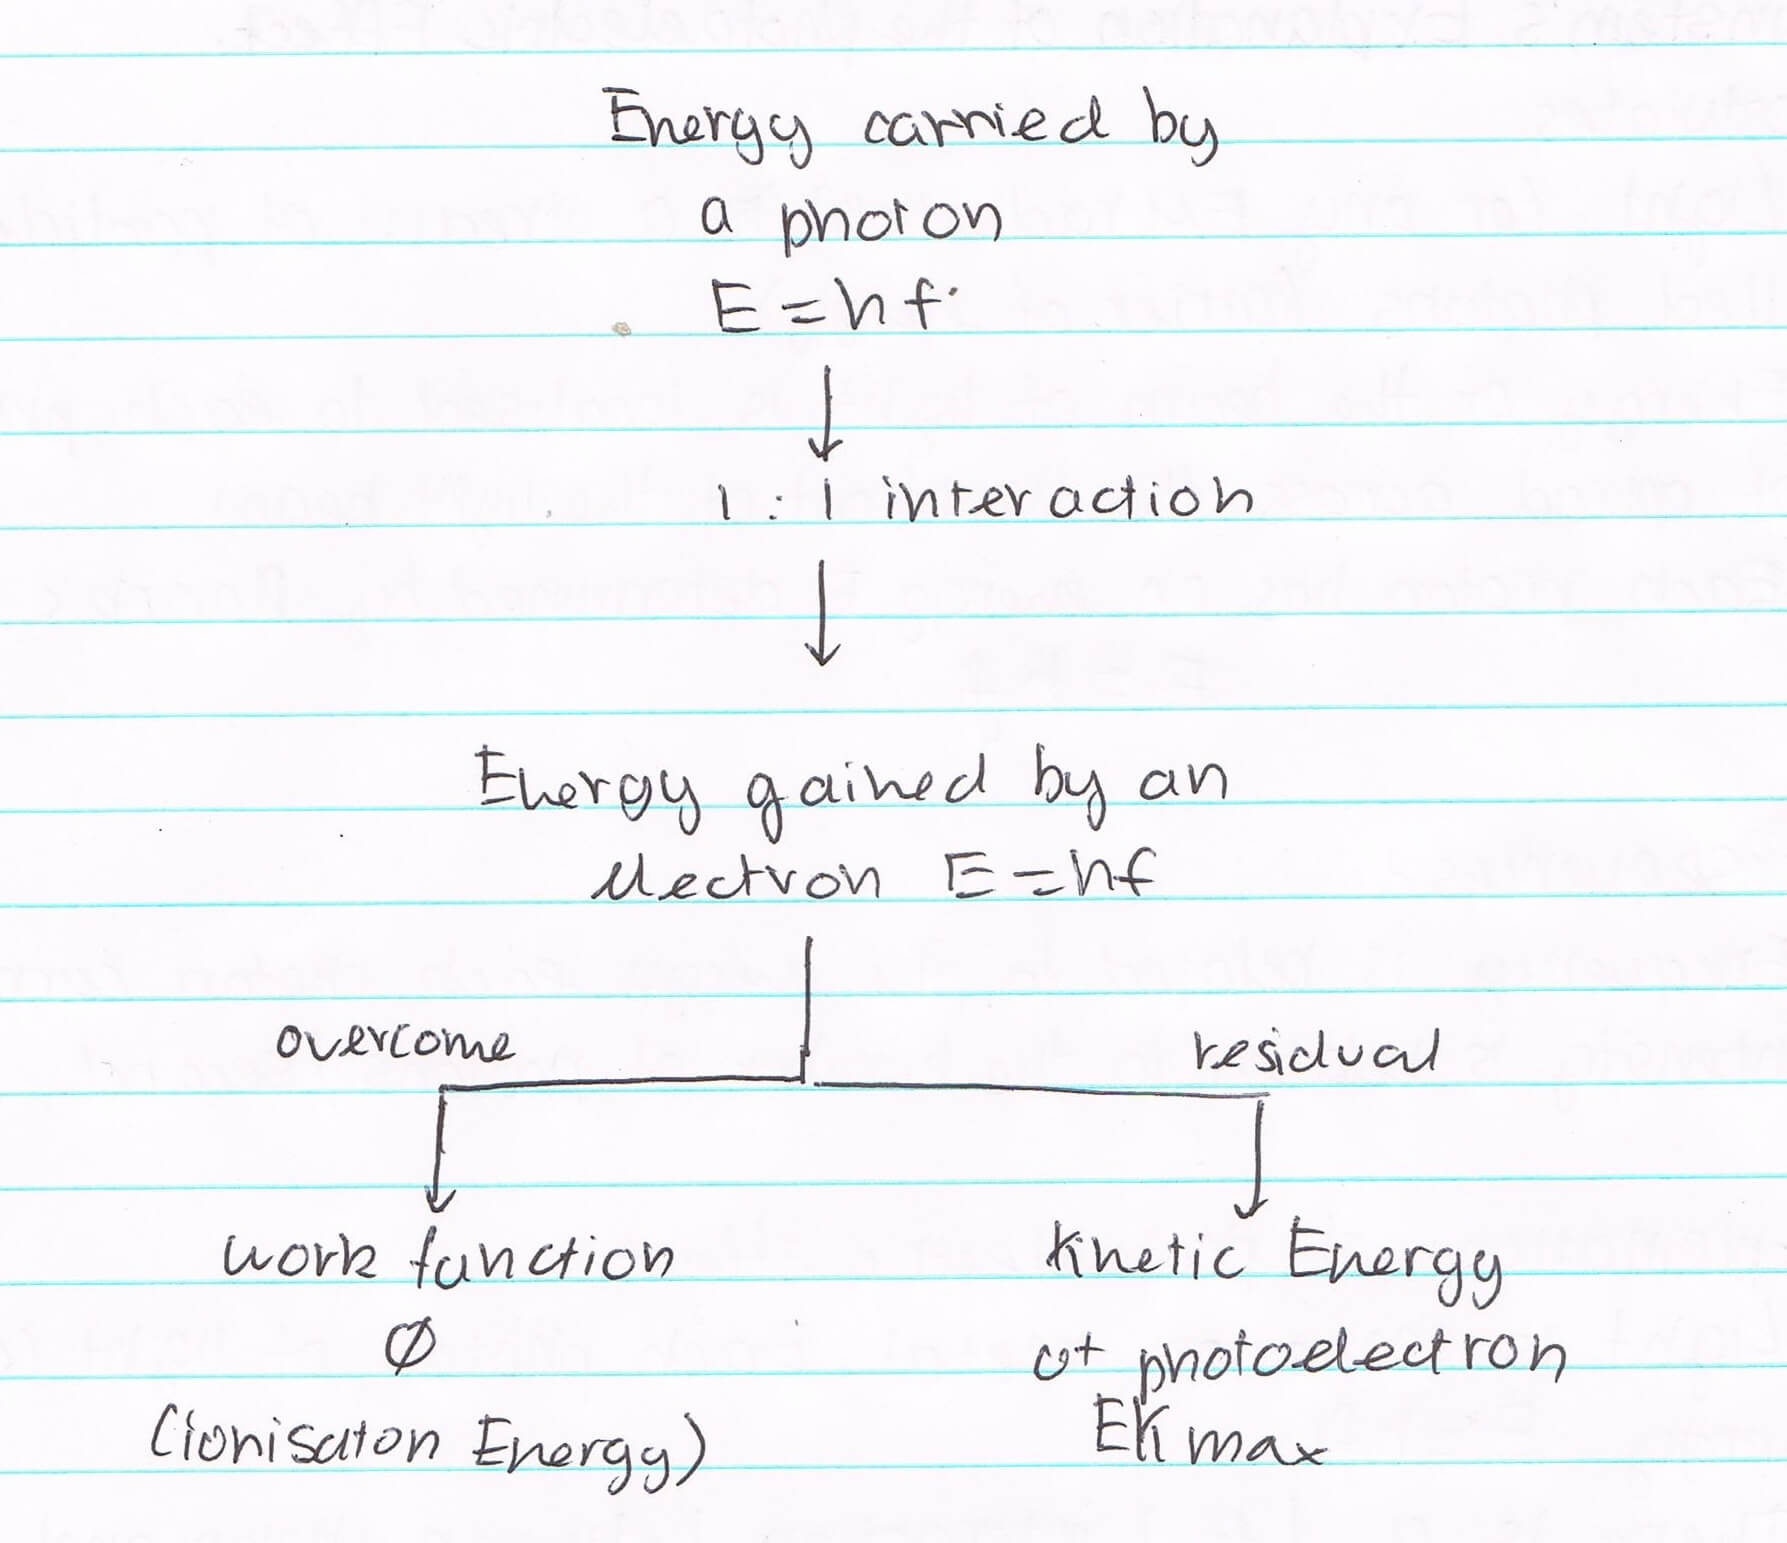 Energy carried by
a photon
E = hf
1 : 1 interaction
Energy gained by an
electron E = hf
overcome
residual
work function
Kinetic Energy
Ø
of photoelectron
(ionisaton Energy)
EK max